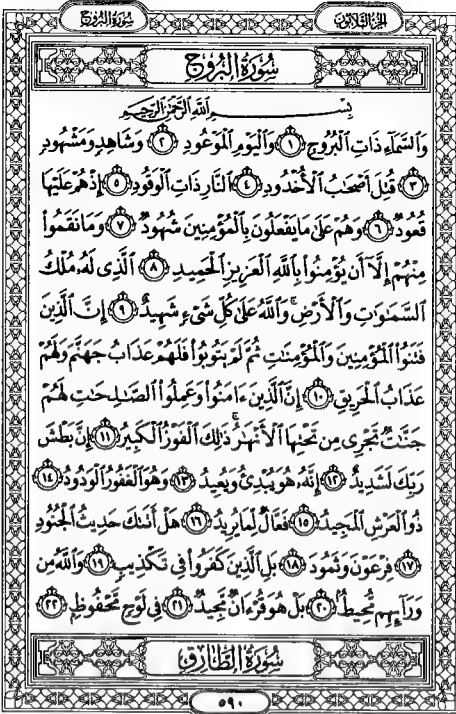 الجزء الثلاثون
سورة البروج
سُورَةُ الْبُرُوجِ
بِسْمِ اللَّهِ الرَّحْمَٰنِ الرَّحِيمِ
وَالسَّمَاءِ ذَاتِ الْبُرُوجِ ١ وَالْيَوْمِ الْمَوْعُودِ ٢ وَشَاهِدٍ وَمَشْهُودٍ
٣ قُتِلَ أَصْحَابُ الْأُخْدُودِ ٤ النَّارِ ذَاتِ الْوَقُودِ ٥ إِذْ هُمْ عَلَيْهَا
قُعُودٌ ٦ وَهُمْ عَلَىٰ مَا يَفْعَلُونَ بِالْمُؤْمِنِينَ شُهُودٌ ٧ وَمَا نَقَمُوا
مِنْهُمْ إِلَّا أَن يُؤْمِنُوا بِاللَّهِ الْعَزِيزِ الْحَمِيدِ ٨ الَّذِي لَهُ مُلْكُ
السَّمَٰوَٰتِ وَالْأَرْضِ ۚ وَاللَّهُ عَلَىٰ كُلِّ شَيْءٍ شَهِيدٌ ٩ إِنَّ الَّذِينَ
فَتَنُوا الْمُؤْمِنِينَ وَالْمُؤْمِنَٰتِ ثُمَّ لَمْ يَتُوبُوا فَلَهُمْ عَذَابُ جَهَنَّمَ وَلَهُمْ
عَذَابُ الْحَرِيقِ ١٠ إِنَّ الَّذِينَ ءَامَنُوا وَعَمِلُوا الصَّٰلِحَٰتِ لَهُمْ
جَنَّٰتٌ تَجْرِي مِن تَحْتِهَا الْأَنْهَٰرُ ۚ ذَٰلِكَ الْفَوْزُ الْكَبِيرُ ١١ إِنَّ بَطْشَ
رَبِّكَ لَشَدِيدٌ ١٢ إِنَّهُ هُوَ يُبْدِئُ وَيُعِيدُ ١٣ وَهُوَ الْغَفُورُ الْوَدُودُ ١٤
ذُو الْعَرْشِ الْمَجِيدُ ١٥ فَعَّالٌ لِّمَا يُرِيدُ ١٦ هَلْ أَتَىٰكَ حَدِيثُ الْجُنُودِ
١٧ فِرْعَوْنَ وَثَمُودَ ١٨ بَلِ الَّذِينَ كَفَرُوا فِي تَكْذِيبٍ ١٩ وَاللَّهُ مِن
وَرَآئِهِم مُّحِيطٌ ٢٠ بَلْ هُوَ قُرْءَانٌ مَّجِيدٌ ٢١ فِي لَوْحٍ مَّحْفُوظٍ ٢٢
سُورَةُ الطَّارِقِ
٥٩٠